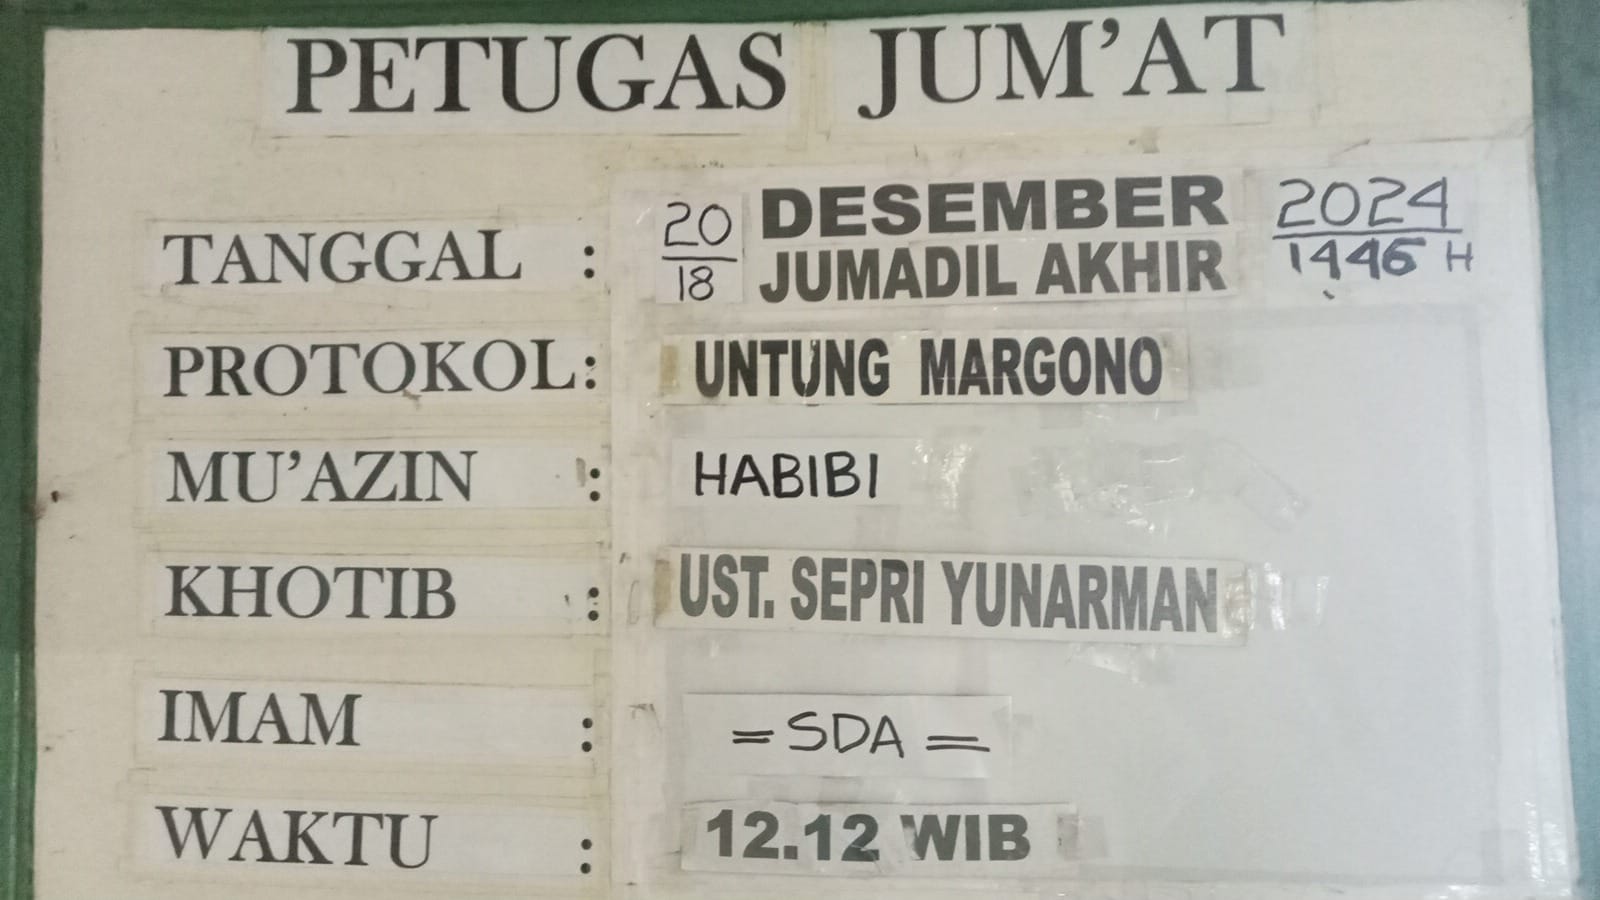 PETUGAS JUM'AT
TANGGAL : 20 DESEMBER 2024
18 JUMADIL AKHIR 1446 H
PROTOKOL : UNTUNG MARGONO
MU'AZIN : HABIBI
KHOTIB : UST. SEPRI YUNARMAN
IMAM : = SDA =
WAKTU : 12.12 WIB